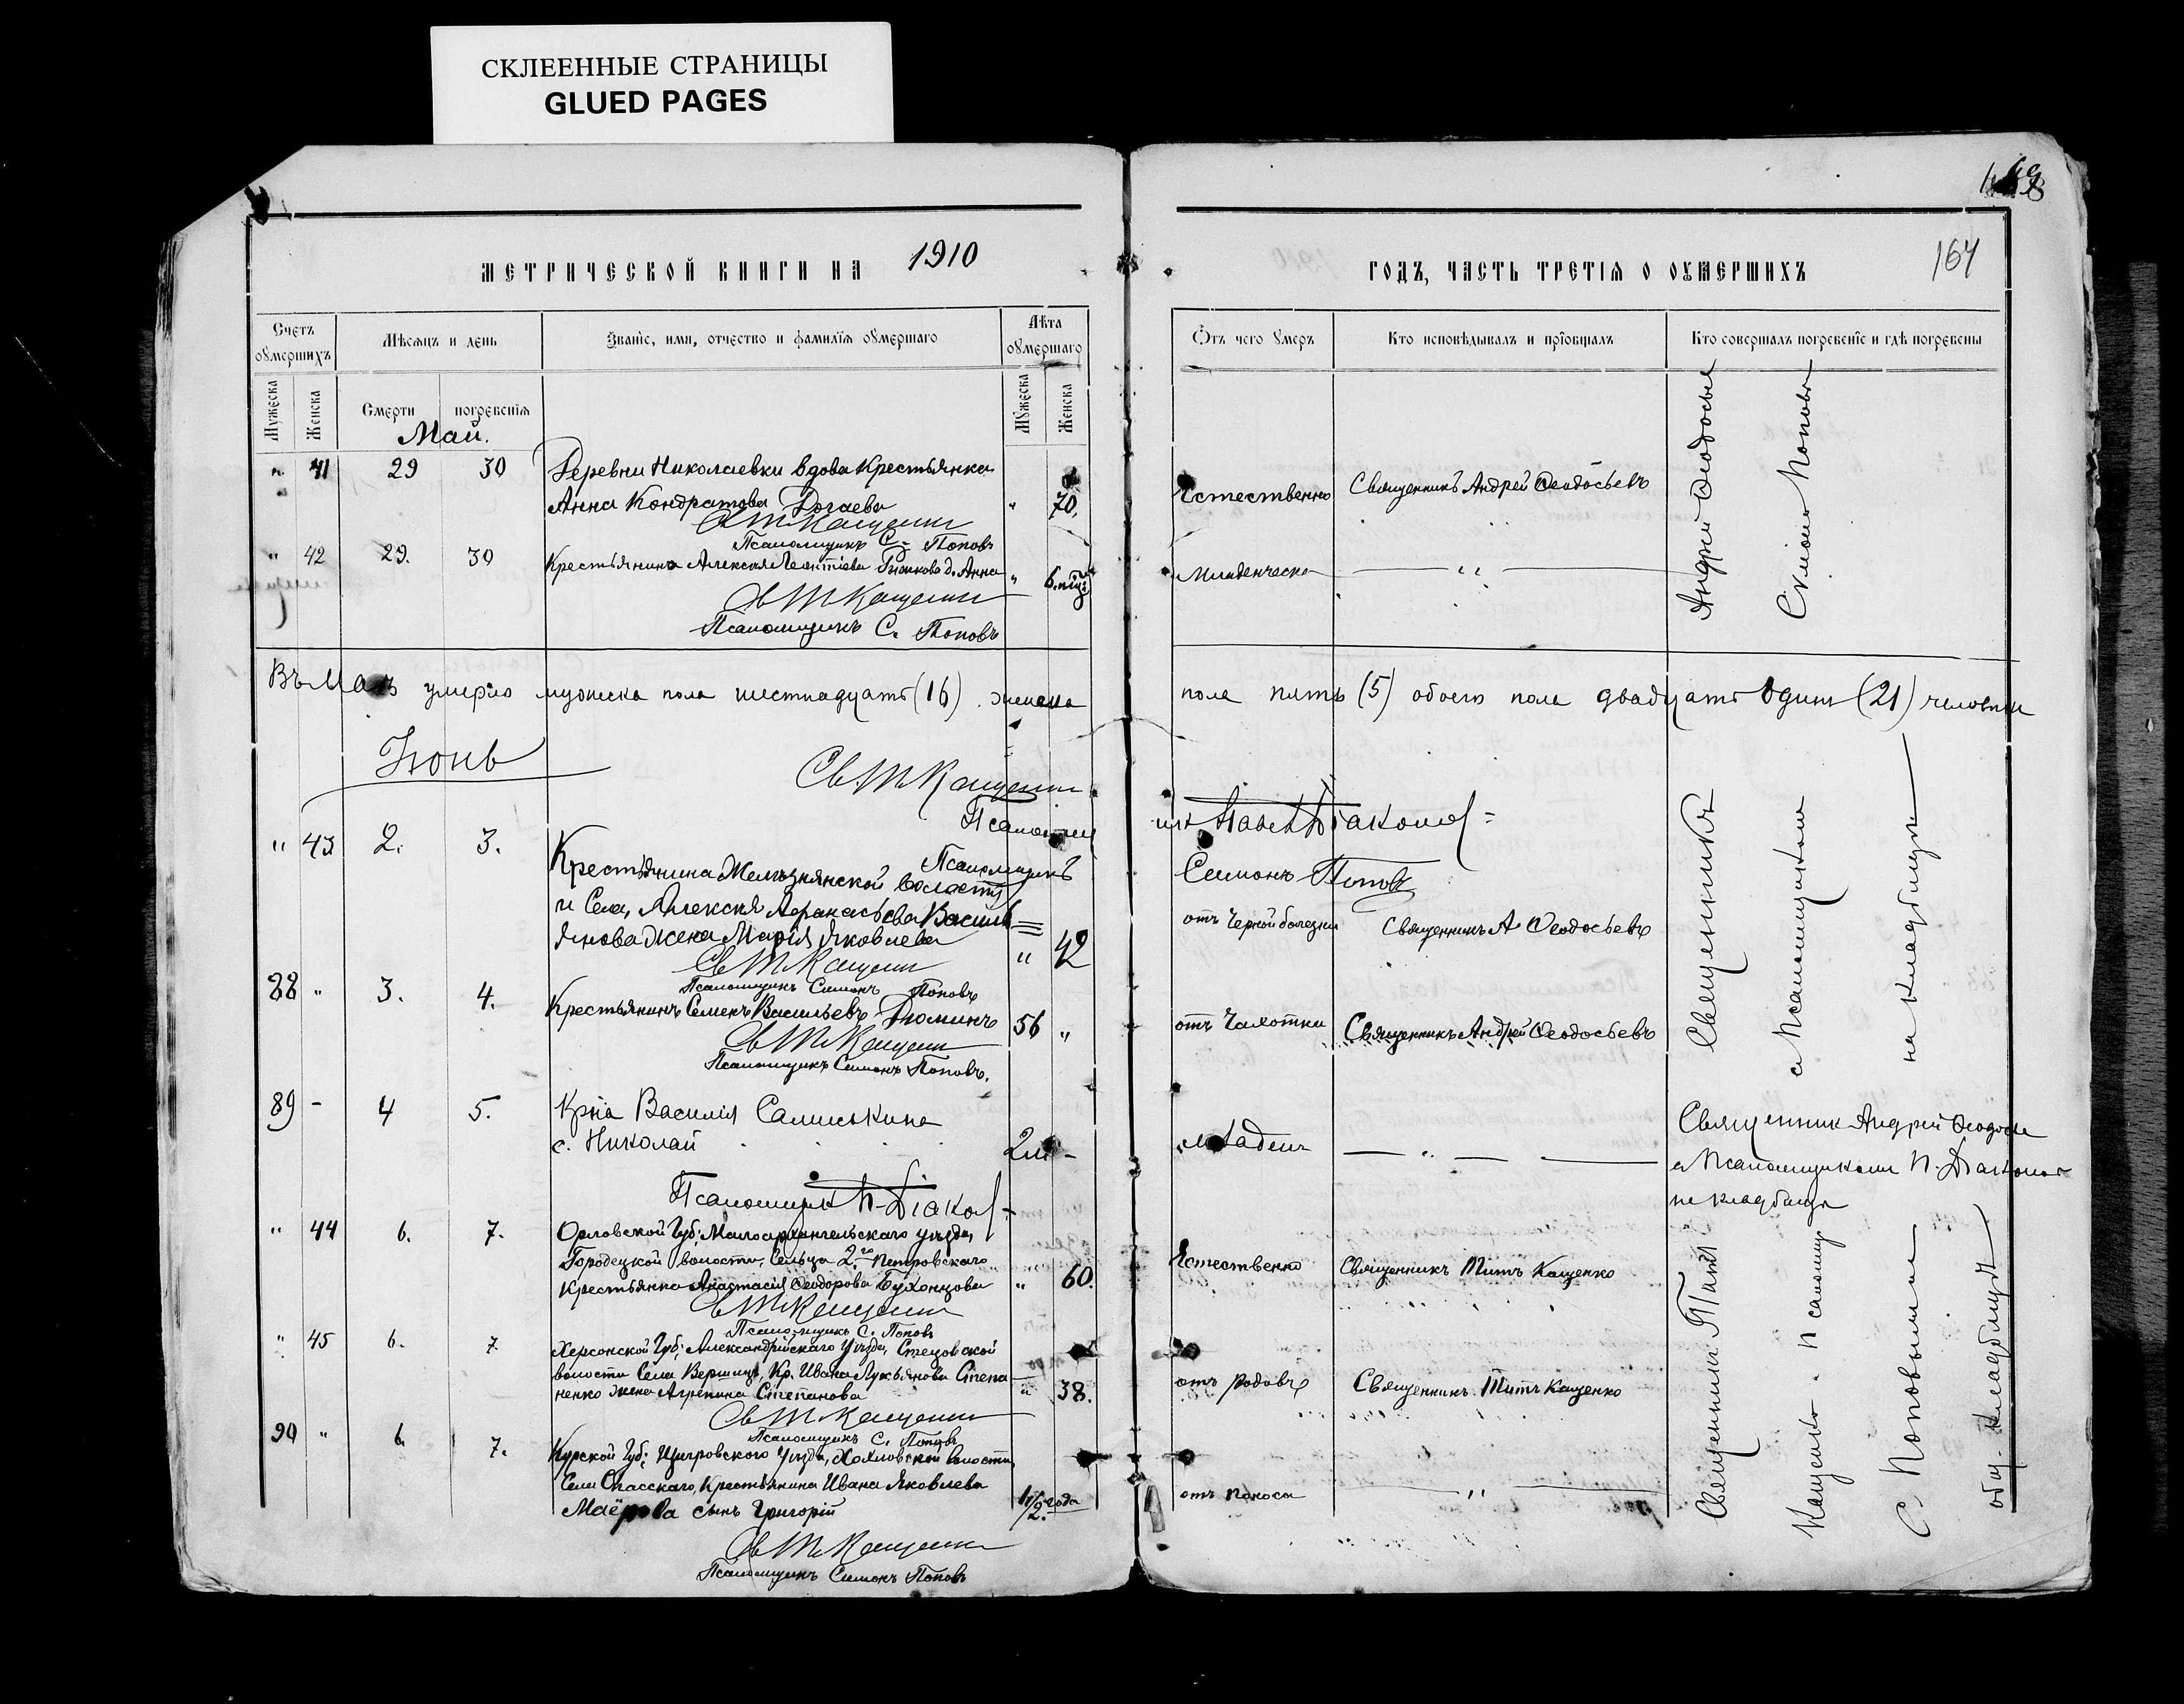 СКЛЕЕННЫЕ СТРАНИЦЫ
GLUED PAGES
МЕТРИЧЕСКОЙ КНИГИ НА 1910
Счетъ оумершихъ
Мѣсяцъ и день
Званіе, имя, отчество и фамилія оумершаго
Лѣта оумершаго
Мужеска
Женска
Смерти
погребенія
Мужеска
Женска
Май.
" 41 29 30 Деревни Николаевки вдова Крестьянка
Анна Кондратова " 70.
Св Т Кащенко
Псаломщикъ С. Поповъ
" 42 29. 30 Крестьянина Алексѣя д. Анна " 6.
Св Т Кащенко
Псаломщикъ С. Поповъ
Въ Маѣ умерло мужеска пола шестнадцать (16) женска
Іюнь
Св Т Кащенко
Псаломщ
" 43 2. 3.
Псаломщикъ
Крестьянина Желѣзнянской волости
и Села, Алексѣя Аѳанасьева Василь=
янова жена Марія Яковлева " 42
Св Т Кащенко
Псаломщикъ Симонъ Поповъ
88 " 3. 4. Крестьянинъ Семенъ Васильевъ Дюминъ 56 "
Св Т Кащенко
Псаломщикъ Симонъ Поповъ.
89 - 4 5. Кр-на Василія
с. Николай 2 -
Псаломщик П. Діаконов
" 44 6. 7. Орловской Губ; Малоархангельскаго уѣзда,
Городецкой волости, Сельца 2.го Петровскаго
Крестьянка Анастасія Ѳеодорова Буханцова " 60.
Св Т Кащенко
Псаломщикъ С. Поповъ
" 45 6. 7 Херсонской Губ; Александрійскаго Уѣзда,
волости Села Кр. Ивана Лукьянова Степа
ненко жена Агрепина Степанова " 38.
Св Т Кащенко
Псаломщикъ С. Поповъ
90 " 6. 7. Курской Губ; Щигровского Уѣзда, волости,
Села Спасскаго, Крестьянина Ивана Яковлева
Маёрова сынъ Григорій 1 1/2. года
Св Т Кащенко
Псаломщикъ Симонъ Поповъ
ГОДЪ, ЧАСТЬ ТРЕТІЯ О ОУМЕРШИХЪ
164
Отъ чего умеръ
Кто исповѣдывалъ и пріобщалъ
Кто совершалъ погребеніе и гдѣ погребены
Естественно Священникъ Андрей Ѳеодосьевъ
Младенческа — " —
Андрей Ѳеодосьев
Симонъ Поповъ
пола пять (5) обоего пола двадцать одинъ (21) человѣкъ
ик Павел Діаконов
Симонъ Поповъ
отъ Черной болезни Священникъ А Ѳеодосьевъ
отъ Чахотки Священникъ Андрей Ѳеодосьевъ
Священникъ
с Псаломщиком
на кладбище
младен — " —
Священник Андрей Ѳеодосьев
с Псаломщиком П. Діаконов
на кладбище
Естественно Священникъ Титъ Кащенко
отъ родовъ Священникъ Титъ Кащенко
отъ поноса — " —
Священникъ Титъ
Кащенко с Псаломщ
С. Поповым на
общ. кладбищѣ